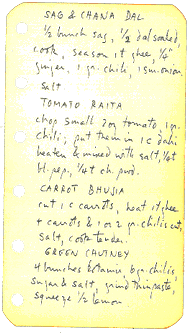 SAG & CHANA DAL
½ bunch sag, ½ dal soaked
cook, season it ghee ¼"
ginger, 1 gr. chili, 1 sm. onion
salt
TOMATO RAITA
chop small 2 tomato 1 gr.
chili; put them in 1 c dahi
beaten & mixed with salt, ¼t
bl. pep, ¼t ch. pwd.
CARROT BHUJIA
cut 1 c carrots, heat 1t ghee
+ carrots & 1 or 2 gr. chilis cut,
salt, cook tender.
GREEN CHUTNEY
4 bunches kotamir, 6 gr. chilis,
sugar & salt, grind thin paste,
squeeze ½ lemon.